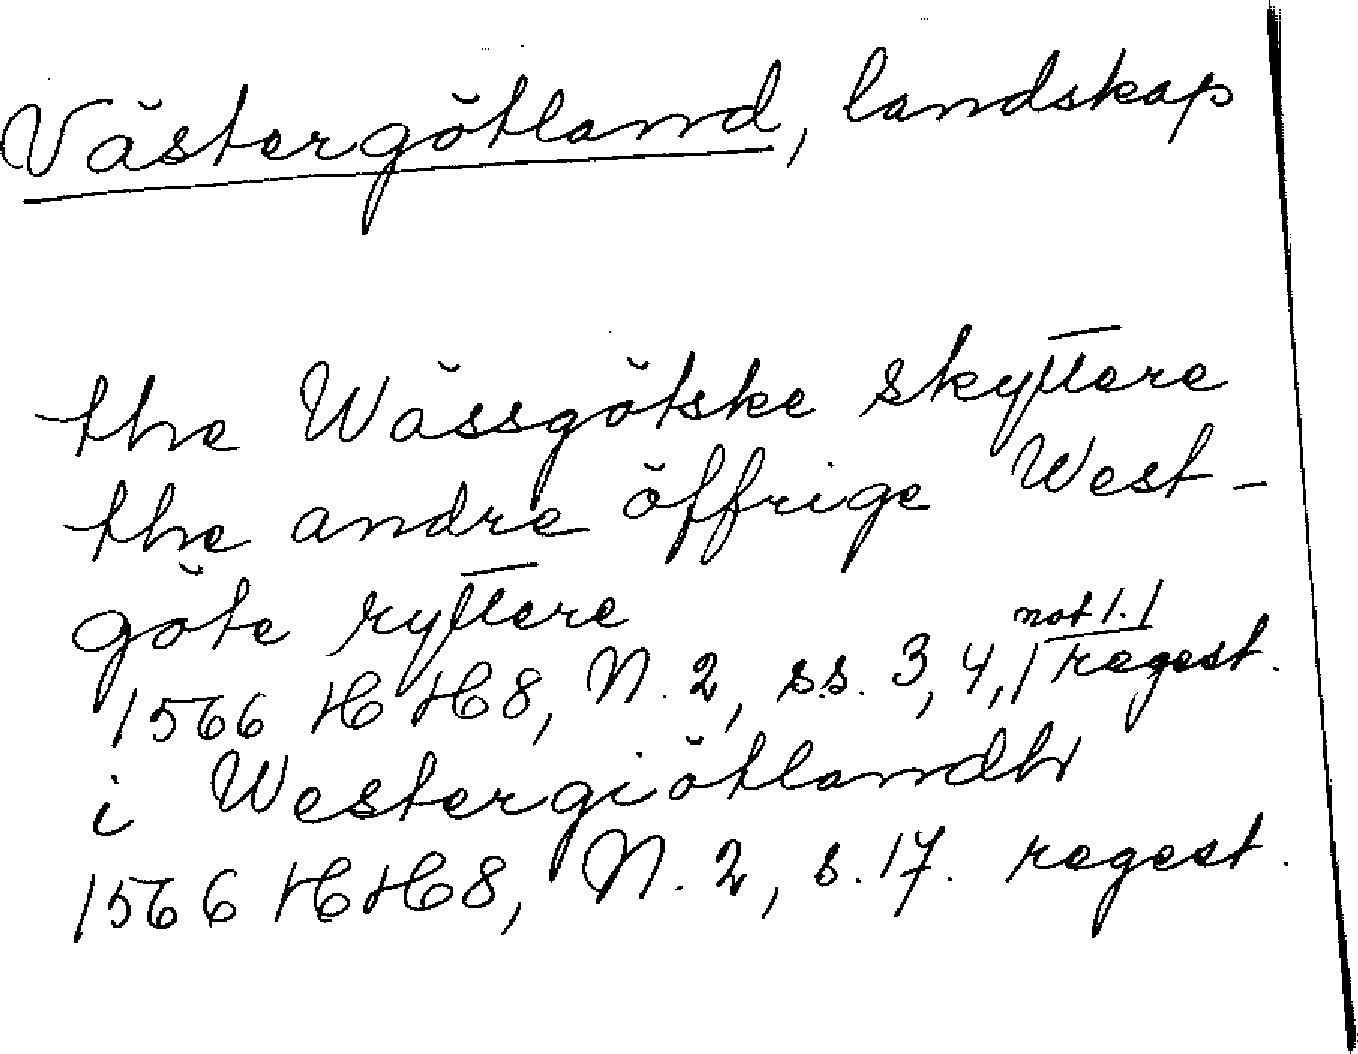 Västergötland, landskap
the Wässgötske skyttere
the andre öffrige West-
göte ryttere
1566 HH8, N. 2, ss. 3, 4, not 1.
regest.
i Westergiötlandh
1566 HH8, N. 2, s. 17. regest.